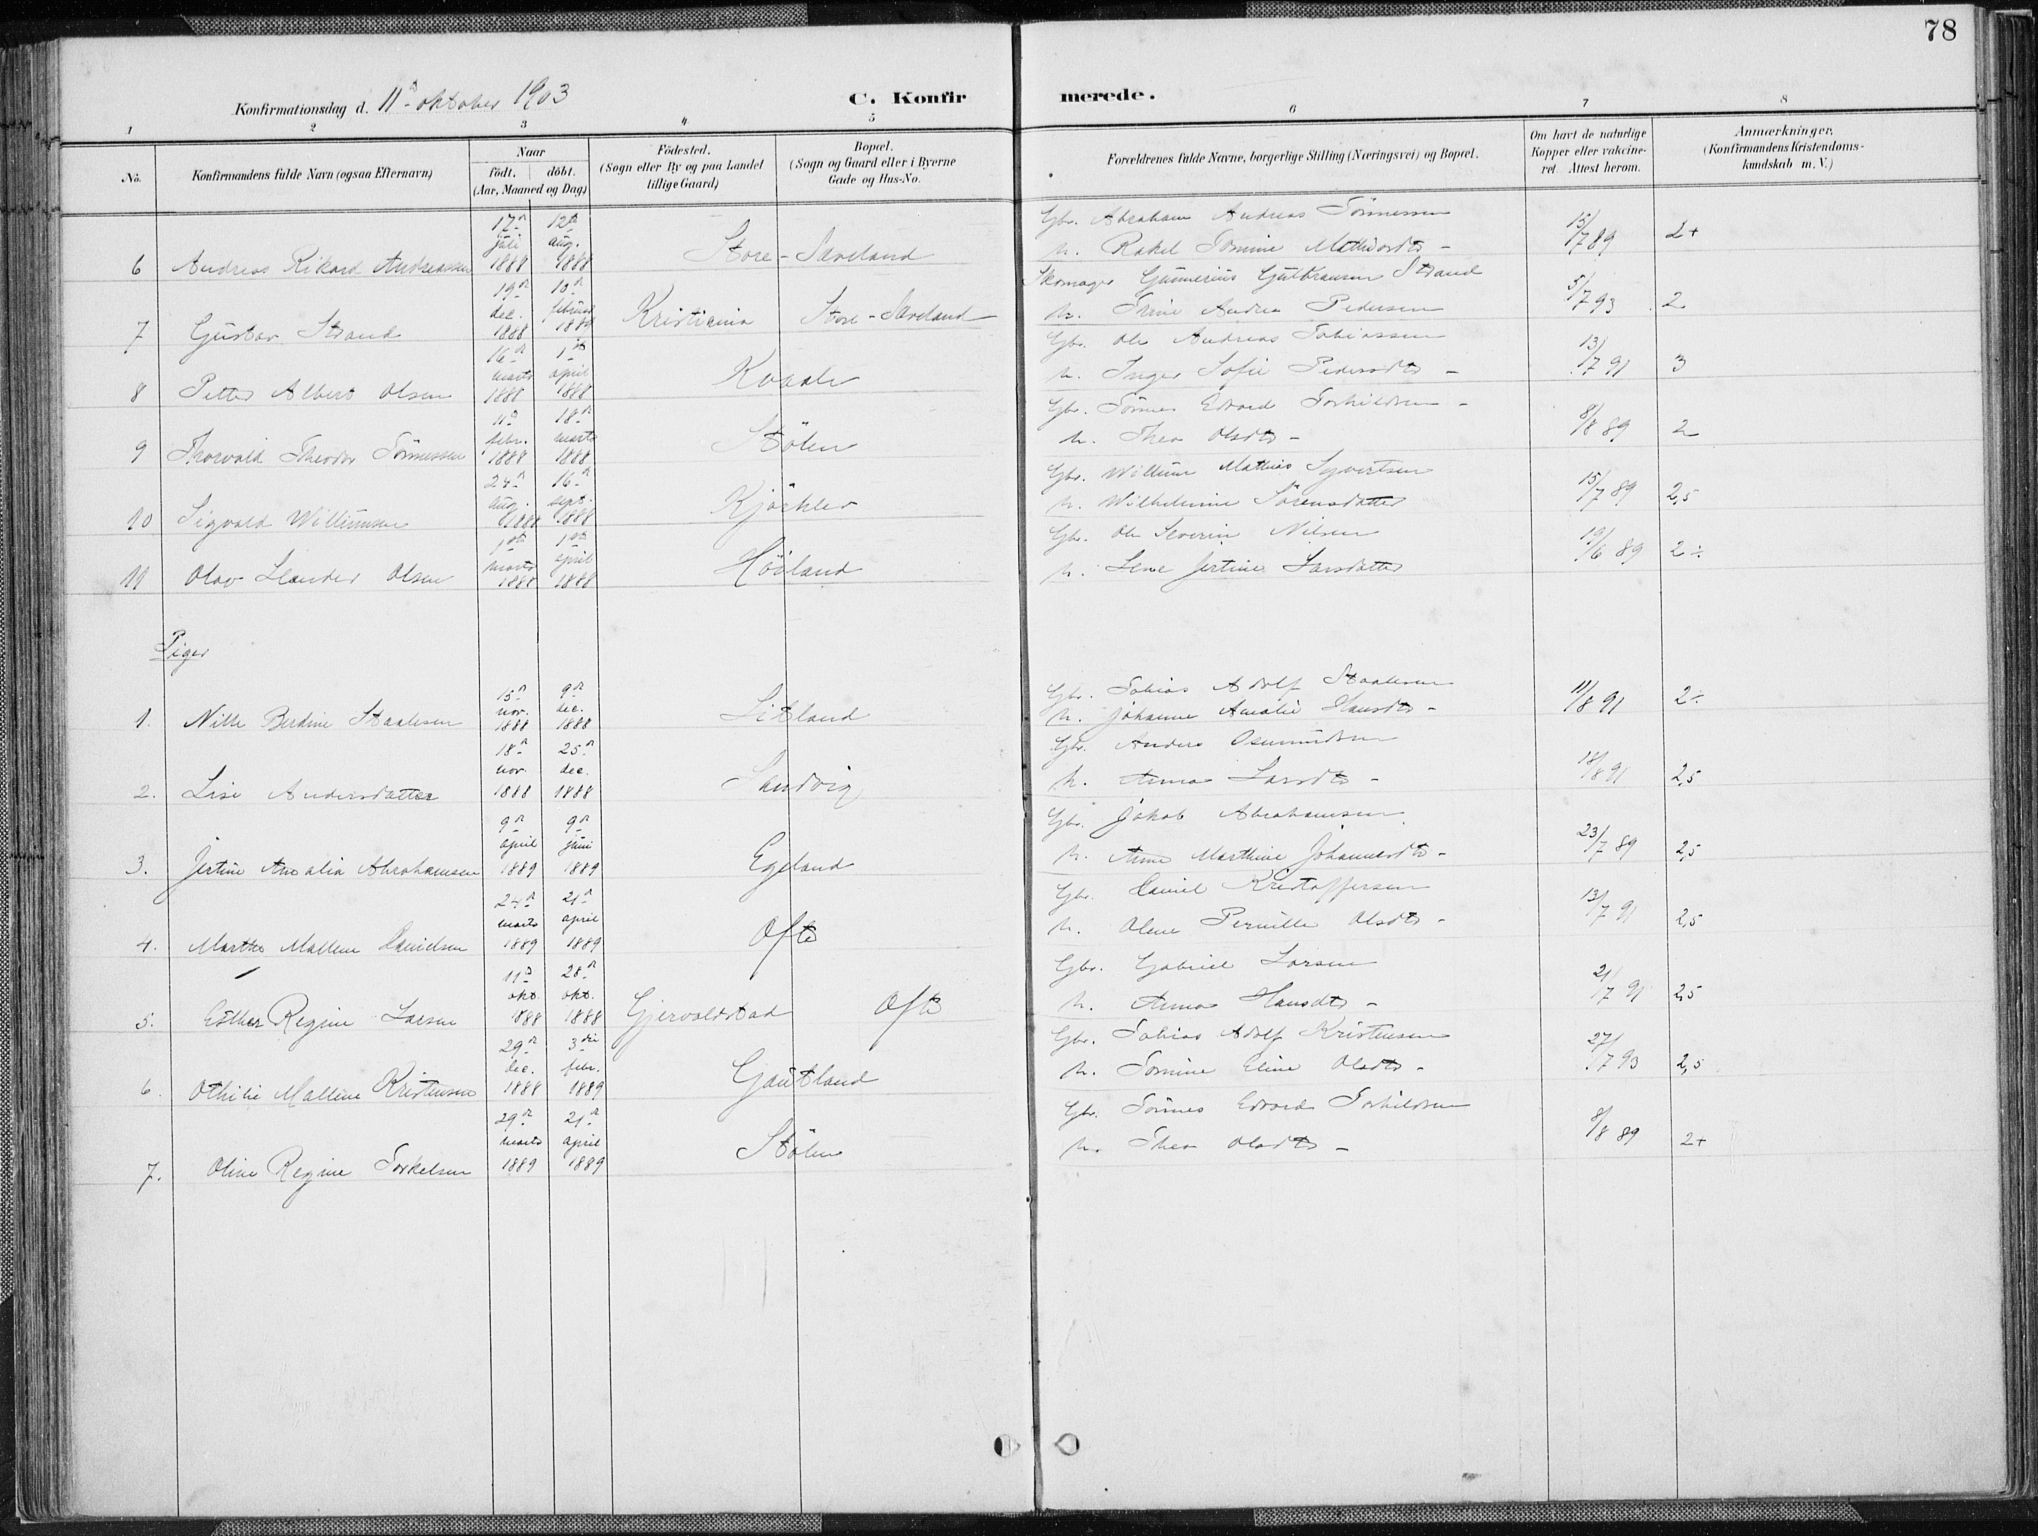 78
Konfirmationsdag d. 11te oktober 1903
C. Konfirmerede.
1 2 3 4 5 6 7 8
No.
Konfirmandens fulde Navn (ogsaa Efternavn)
Naar
födt. döbt.
(Aar, Maaned og Dag)
Födested.
(Sogn eller By og paa Landet
tillige Gaard)
Bopæl.
(Sogn og Gaard eller i Byerne
Gade og Hus-No.
Forældrenes fulde Navne, borgerlige Stilling (Næringsvei) og Bopæl.
Om havt de naturlige
Kopper eller vakcine-
ret. Attest herom.
Anmærkninger,
(Konfirmandens Kristendoms-
kundskab m. V.)
6 Andreas Rikard Andreassen 17de juli 1888 12te aug. 1888 Store-Saveland
Gbr. Abraham Andreas Tönnessen
h. Rakel Tomine Mathiasdtr - 15/7 89 2+
7 Gustav Strand 19de dec. 1888 10de februar 1889 Kristiania Store-Saveland
Skomager Gunnerius Gulbransen Strand
h. Trine Andrea Pedersen 5/7 93 2
8 Petter Albert Olsen 16de marts 1888 1ste april 1888 Kvaale
Gbr. Ole Andreas Tobiassen
h. Inger Sofie Pedersdtr - 13/7 91 3
9 Thorvald Theodor Tönnessen 11te febr. 1888 18de marts 1888 Stölen
Gbr. Tönnes Edvard Torkildsen -
h. Thea Olsdtr - 8/8 89 2
10 Sigvald Willumsen 24de aug. 1888 16de sept. 1888 Kjörklev
Gbr. Willum Mathias Syvertsen
h. Wilhelmine Sörensdatter 15/7 89 2,5
11 Olav Leander Olsen 1ste marts 1888 1ste april 1888 Höiland
Gbr. Ole Severin Nilsen
h. Lene Jertine Larsdatter 19/6 89 2÷
Piger
1. Nille Berdine Staalesen 15de nov. 1888 9de dec. 1888 Litland
Gbr. Tobias Adolf Staalesen
h. Johanne Amalie Hansdtr - 11/8 91 2÷
2. Lise Andersdatter 18de nov. 1888 25de dec. 1888 Sandvig
Gbr. Anders Osmundsen
h. Anna Larsdtr - 18/8 91 2,5
3. Jertine Amalia Abrahamsen 9de april 1889 9de juni 1889 Egeland
Gbr. Jakob Abrahamsen
h. Anne Marthine Johannesdtr - 23/7 89 2,5
4. Marthe Mallene Danielsen 24de marts 1889 21de april 1889 Ofte
Gbr. Daniel Kristoffersen
h. Olene Pernille Olsdtr - 13/7 91 2,5
5. Esther Regine Larsen 11te okt. 1888 28de okt. 1888 Gjervoldstad Ofte
Gbr. Gabriel Larsen
h. Anna Hansdtr - 21/7 91 2,5
6. Othilie Mallene Kristensen 29de dec. 1888 3die febr. 1889 Gautland
Gbr. Tobias Adolf Kristensen
h. Tomine Eline Olsdtr - 27/7 93 2,5
7. Oline Regine Torkelsen 29de marts 1889 21de april 1889 Stölen
Gbr. Tönnes Edvard Torkildsen
h. Thea Olsdtr - 8/8 89 2+